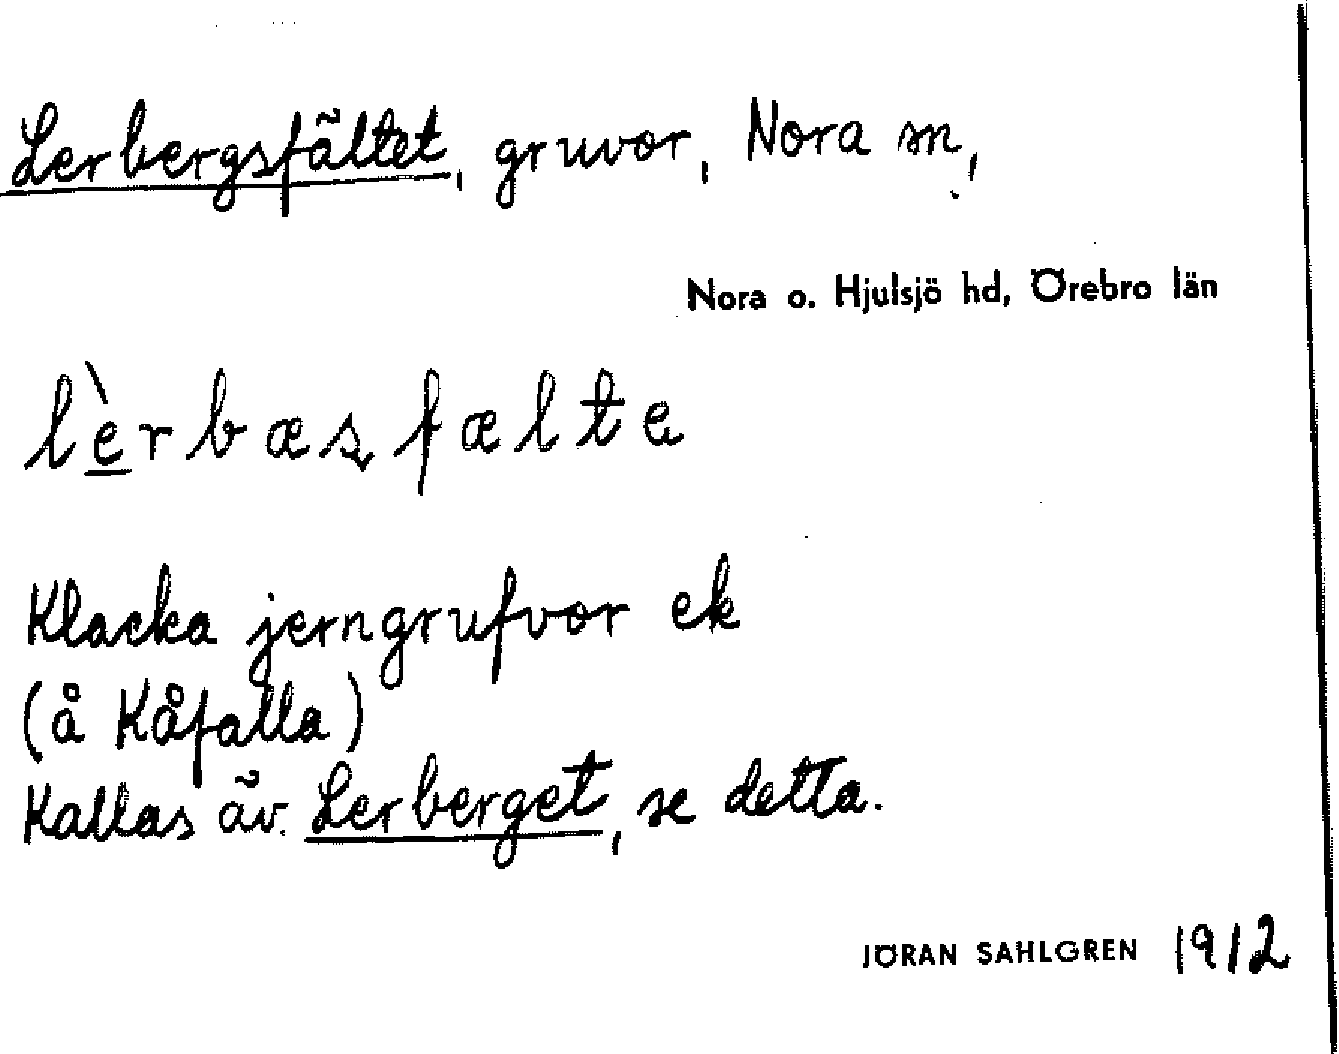 Lerbergsfältet, gruvor, Nora sn,
Nora o. Hjulsjö hd, Örebro län
lèrbæsfælte
Klacka jerngrufvor ek
(å Kåfalla)
Kallas äv. Lerberget, se detta.
JÖRAN SAHLGREN 1912